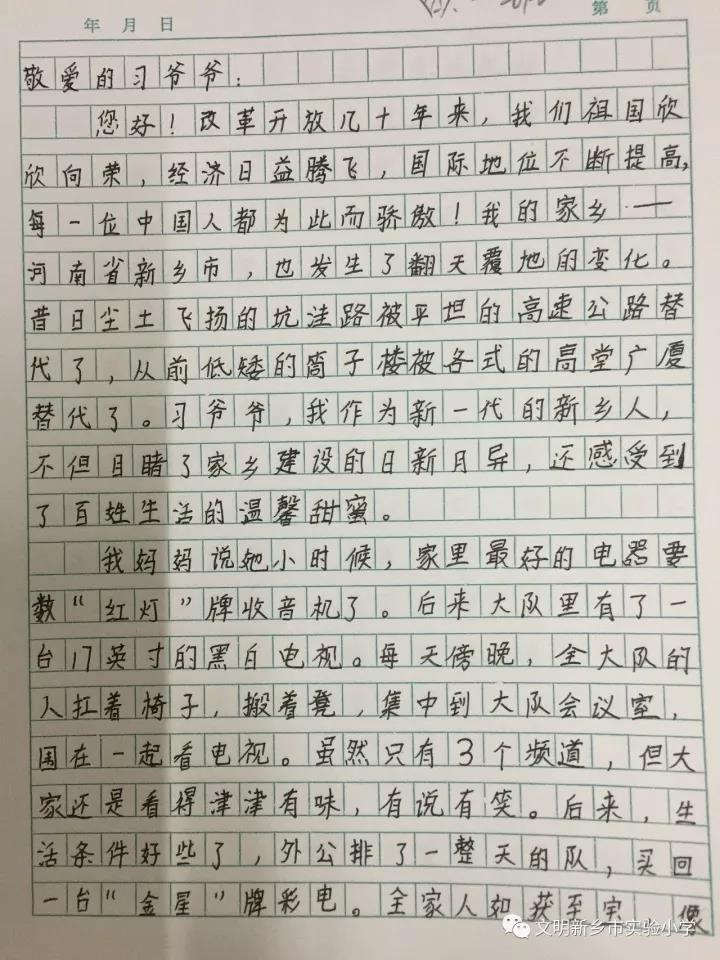 年 月 日
第 页
敬爱的习爷爷：
您好！改革开放几十年来，我们祖国欣
欣向荣，经济日益腾飞，国际地位不断提高，
每一位中国人都为此而骄傲！我的家乡——
河南省新乡市，也发生了翻天覆地的变化。
昔日尘土飞扬的坑洼路被平坦的高速公路替
代了，从前低矮的筒子楼被各式的高堂广厦
替代了。习爷爷，我作为新一代的新乡人，
不但目睹了家乡建设的日新月异，还感受到
了百姓生活的温馨甜蜜。
我妈妈说她小时候，家里最好的电器要
数“红灯”牌收音机了。后来大队里有了一
台17英寸的黑白电视。每天傍晚，全大队的
人扛着椅子，搬着凳，集中到大队会议室，
围在一起看电视。虽然只有3个频道，但大
家还是看得津津有味，有说有笑。后来，生
活条件好些了，外公排了一整天的队，买回
一台“金星”牌彩电。全家人如获至宝 像
文明新乡市实验小学